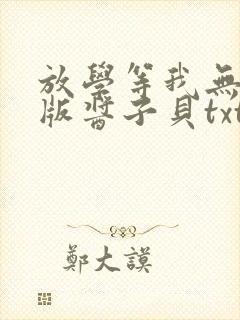 放學等我無
版醬子貝txt
鄭大謨